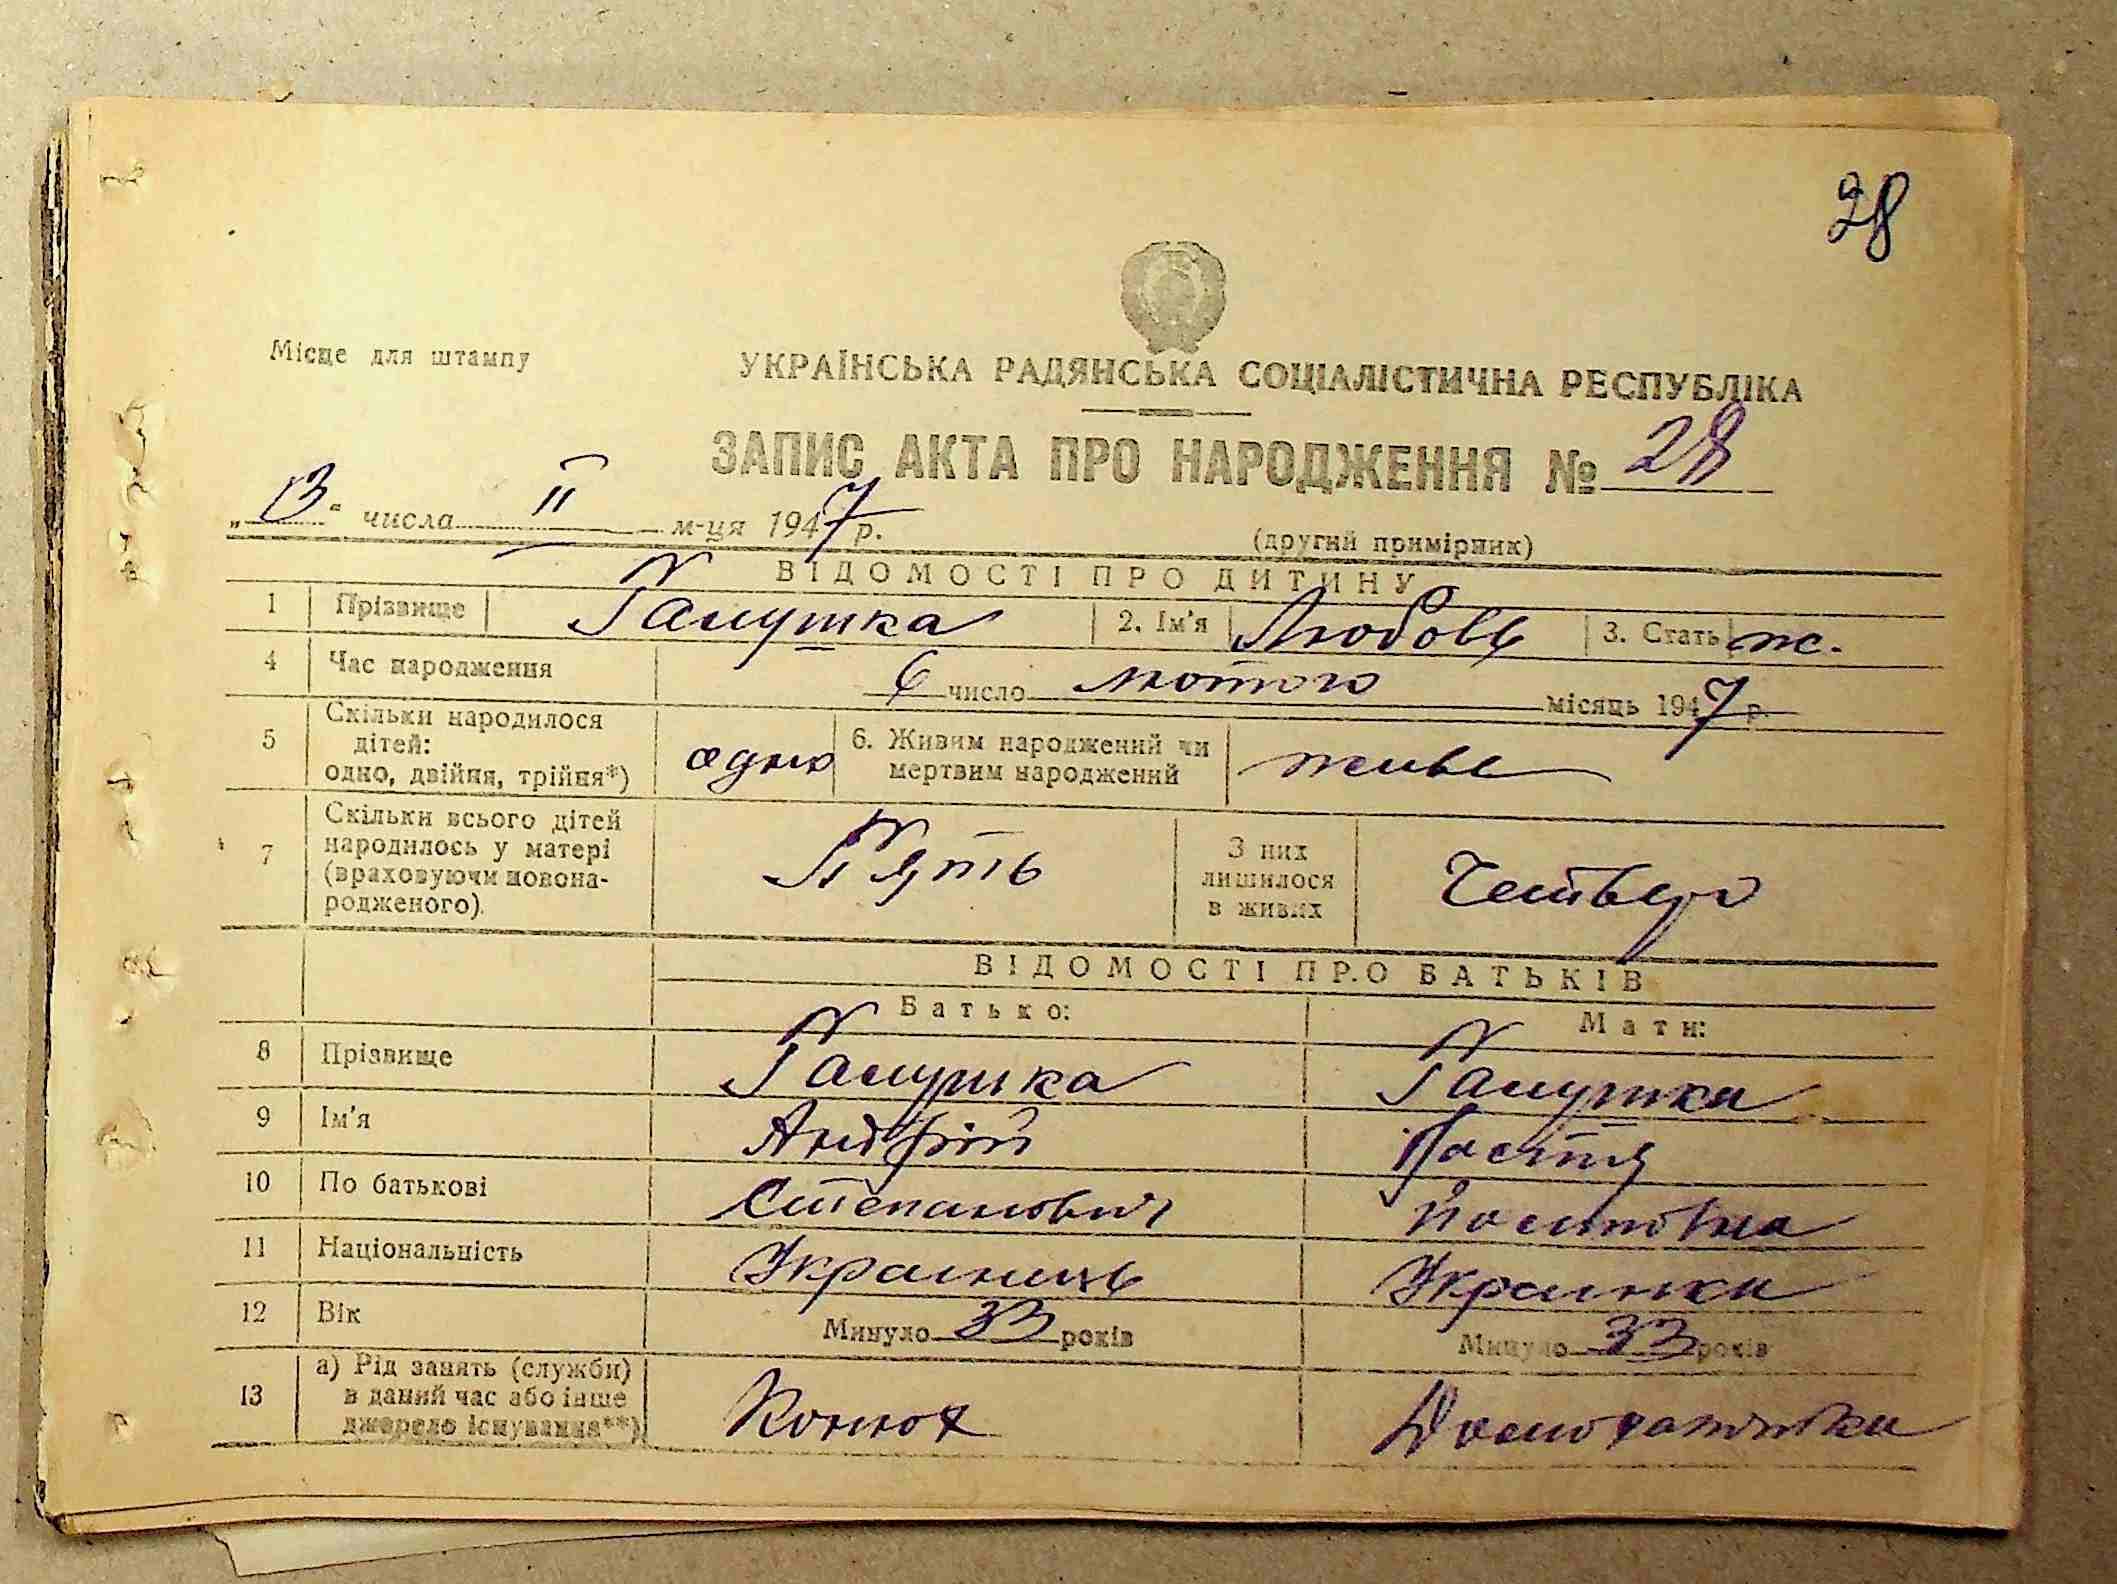 28
Місце для штампу
УКРАЇНСЬКА РАДЯНСЬКА СОЦІАЛІСТИЧНА РЕСПУБЛІКА
ЗАПИС АКТА ПРО НАРОДЖЕННЯ № 28
„13“ числа II м-ця 1947 р.
(другий примірник)
ВІДОМОСТІ ПРО ДИТИНУ
1 Прізвище Галушка 2. Ім'я Любовь 3. Стать ж.
4 Час народження 6 число лютого місяць 1947 р.
5 Скільки народилося дітей: одно, двійня, трійня*) одно 6. Живим народжений чи мертвим народжений живе
7 Скільки всього дітей народилось у матері (враховуючи новонародженого). П'ять З них лишилося в живих Четверо
ВІДОМОСТІ ПРО БАТЬКІВ
Батько: Мати:
8 Прізвище Галушка Галушка
9 Ім'я Андрій Настя
10 По батькові Степанович Йосиповна
11 Національність Украинець Украинка
12 Вік Минуло 33 років Минуло 33 років
13 а) Рід занять (служби) в даний час або інше джерело існування**) Конюх Домохазяйка